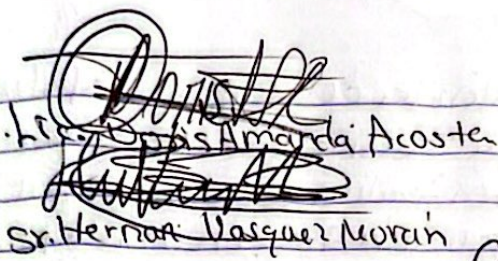 Lic. Doris Amanda Acosta
Sr. Hernan Vasquez Morán